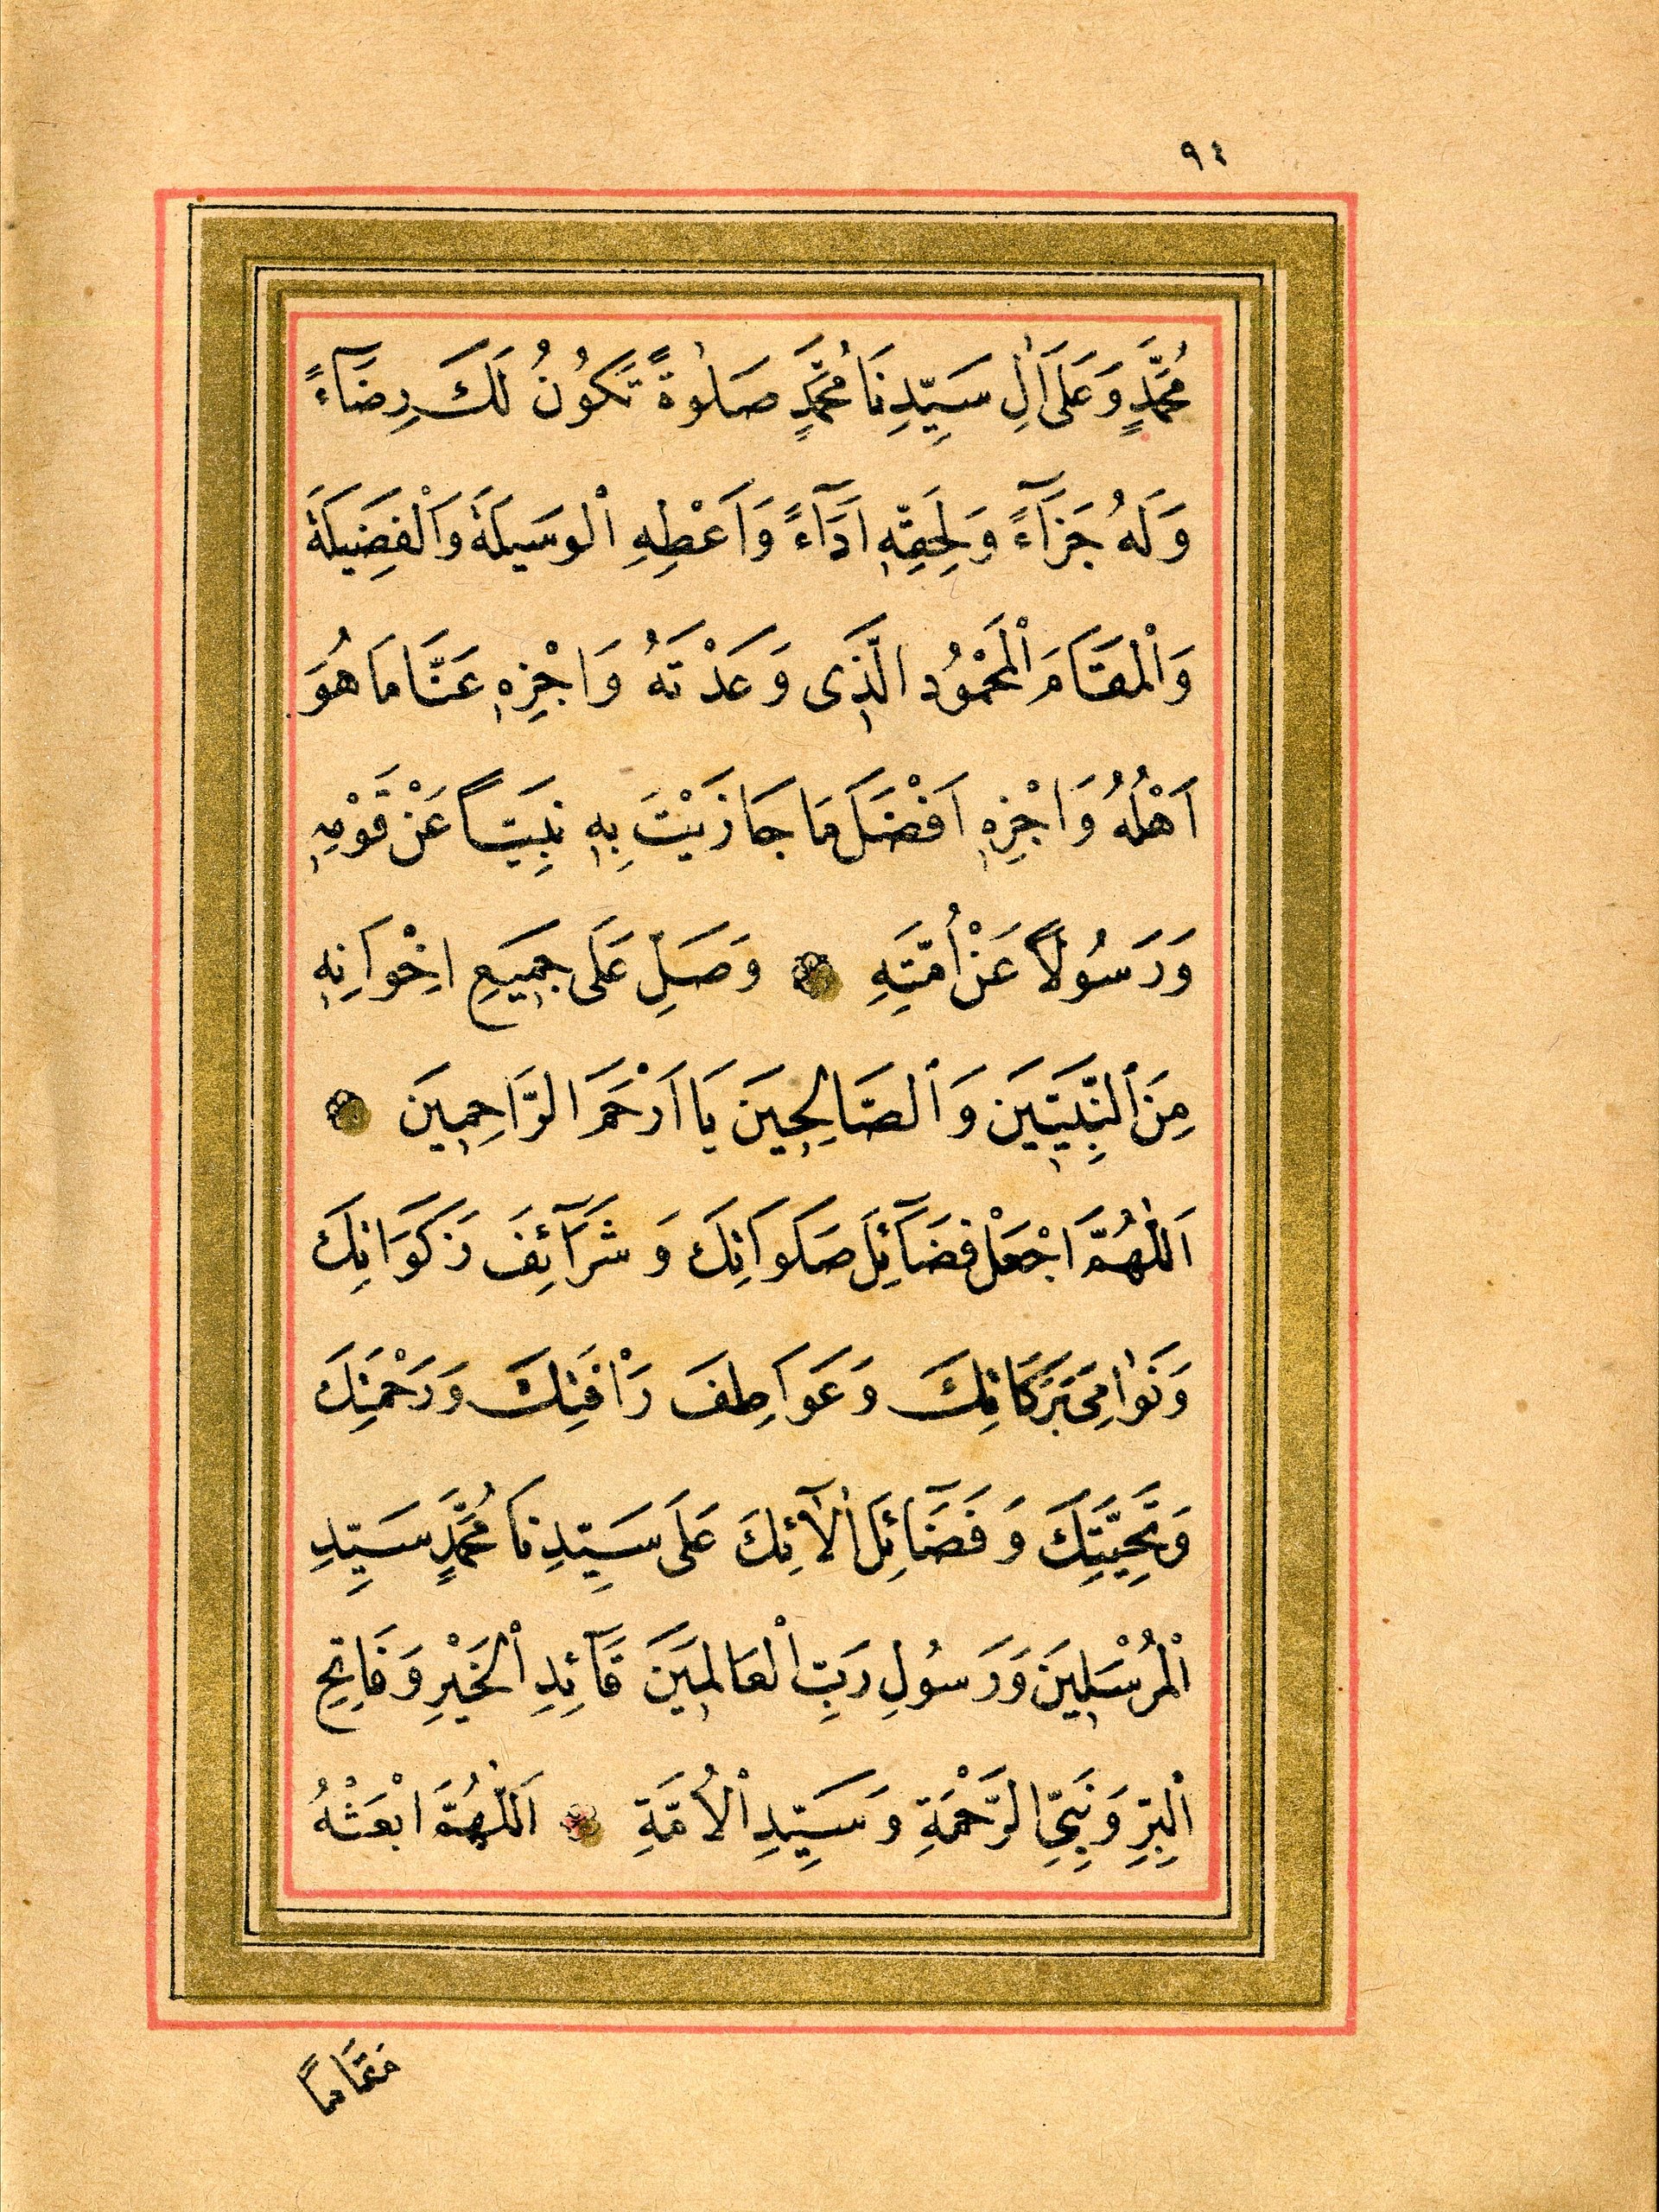 ٩٤
مُحَمَّدٍ وَعَلَى اٰلِ سَيِّدِنَا مُحَمَّدٍ صَلٰوةً تَكُونُ لَكَ رِضَآءً
وَلَهُ جَزَآءً وَلِحَقِّهٖ اَدَآءً وَاَعْطِهِ الْوَسِيلَةَ وَالْفَضِيلَةَ
وَالْمَقَامَ الْمَحْمُودِ الَّذٖى وَعَدْتَهُ وَاجْزِهٖ عَنَّا مَا هُوَ
اَهْلُهُ وَاجْزِهٖ اَفْضَلَ مَا جَازَيْتَ بِهٖ نَبِيًّا عَنْ قَوْمِهٖ
وَرَسُولاً عَنْ اُمَّتِهِ وَصَلِّ عَلَى جَمٖيعِ اِخْوَانِهٖ
مِنَ النَّبِيّٖينَ وَالصَّالِحٖينَ يَا اَرْحَمَ الرَّاحِمٖينَ
اَللّٰهُمَّ اجْعَلْ فَضَآئِلَ صَلَوَاتِكَ وَ شَرَآئِفَ زَكَوَاتِكَ
وَنَوَامِىَ بَرَكَاتِكَ وَعَوَاطِفَ رَاْفَتِكَ وَرَحْمَتِكَ
وَتَحِيَّتِكَ وَفَضَآئِلَ اٰلَآئِكَ عَلَى سَيِّدِنَا مُحَمَّدٍ سَيِّدِ
الْمُرْسَلٖينَ وَرَسُولِ رَبِّ الْعَالَمٖينَ قَآئِدِ الْخَيْرِ وَفَاتِحِ
الْبِرِّ وَنَبِىِّ الرَّحْمَةِ وَسَيِّدِ الْاُمَّةِ اَللّٰهُمَّ ابْعَثْهُ
مَقَامًا